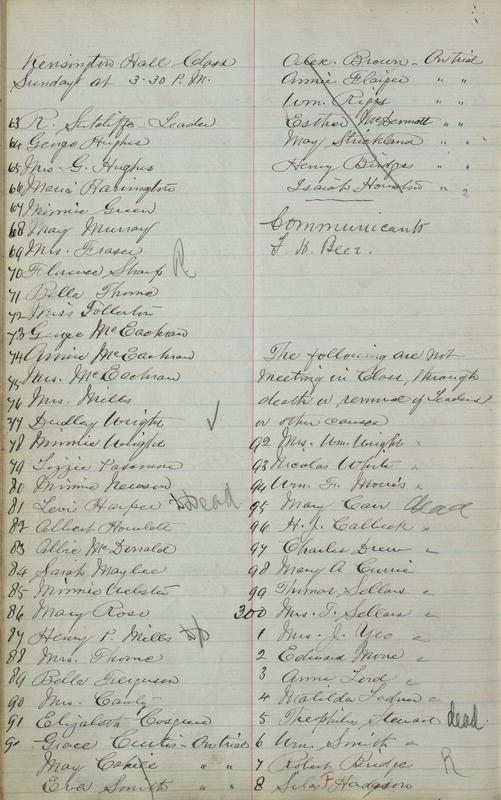 Kensington Hall Class
Sunday at 3.30 P.M.
63 R. Sutcliffe Leader
64 George Hughes
65 Mrs. G. Hughes
66 Maria Harrington
67 Minnie Green
68 May Murray
69 Mrs. Fraser
70 Florence Sharp R
71 Bella Thorne
72 Miss Fullerton
73 George McEachran
74 Annie McEachran
75 Mrs. McEachran
76 Mrs. Mills
77 Dudley Wright
78 Minnie Wright
79 Lizzie
80 Minnie Newson
81 Levi Harper Dead
82 Albert Howlett
83 Allie McDonald
84 Sarah Maylee
85 Minnie Webster
86 Mary Rose
87 Henry P. Mills
88 Mrs. Thorne
89 Bella Ferguson
90 Mrs. 
91 Elizabeth Cosgrove
Grace Curtis - On trial
May " "
Eva Smith " "
Alex. Brown - On trial
Annie " "
Wm. Riggs " "
Esther McDermott " "
May Strickland " "
Henry Bridges " "
Isaiah Houston " "
Communicants
Beer.
The following are not
meeting in Class, through
death or removal of Leaders
or other causes
92 Mrs. Wm. Wright "
93 Nicolas White "
94 Wm. Fr. Morris "
95 Mary Carr dead
96 H. J. Calbeck "
97 Charles Drew "
98 Mary A Currie
99 Thomas Sellars "
300 Mrs. T. Sellars "
1 Mrs. J. Yeo "
2 Edward Moore "
3 Annie Lord "
4 Matilda "
5 Theophilus Stewart dead.
6 Wm. Smith "
7 Robert Bridge R
8 Silas F Hodgson